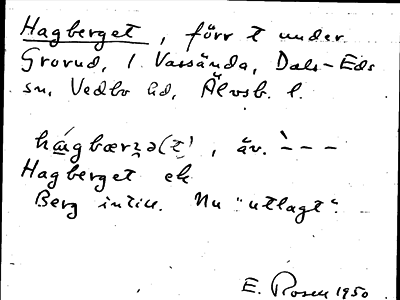 Hagberget, förr t under
Grovud, 1 Vassända, Dals-Eds
sn, Vedbo hd, Älvsb. l.
hágbærʒə(t), äv. `- - -
Hagberget ek
Berg intill. Nu "utlagt".
E. Rosen 1950